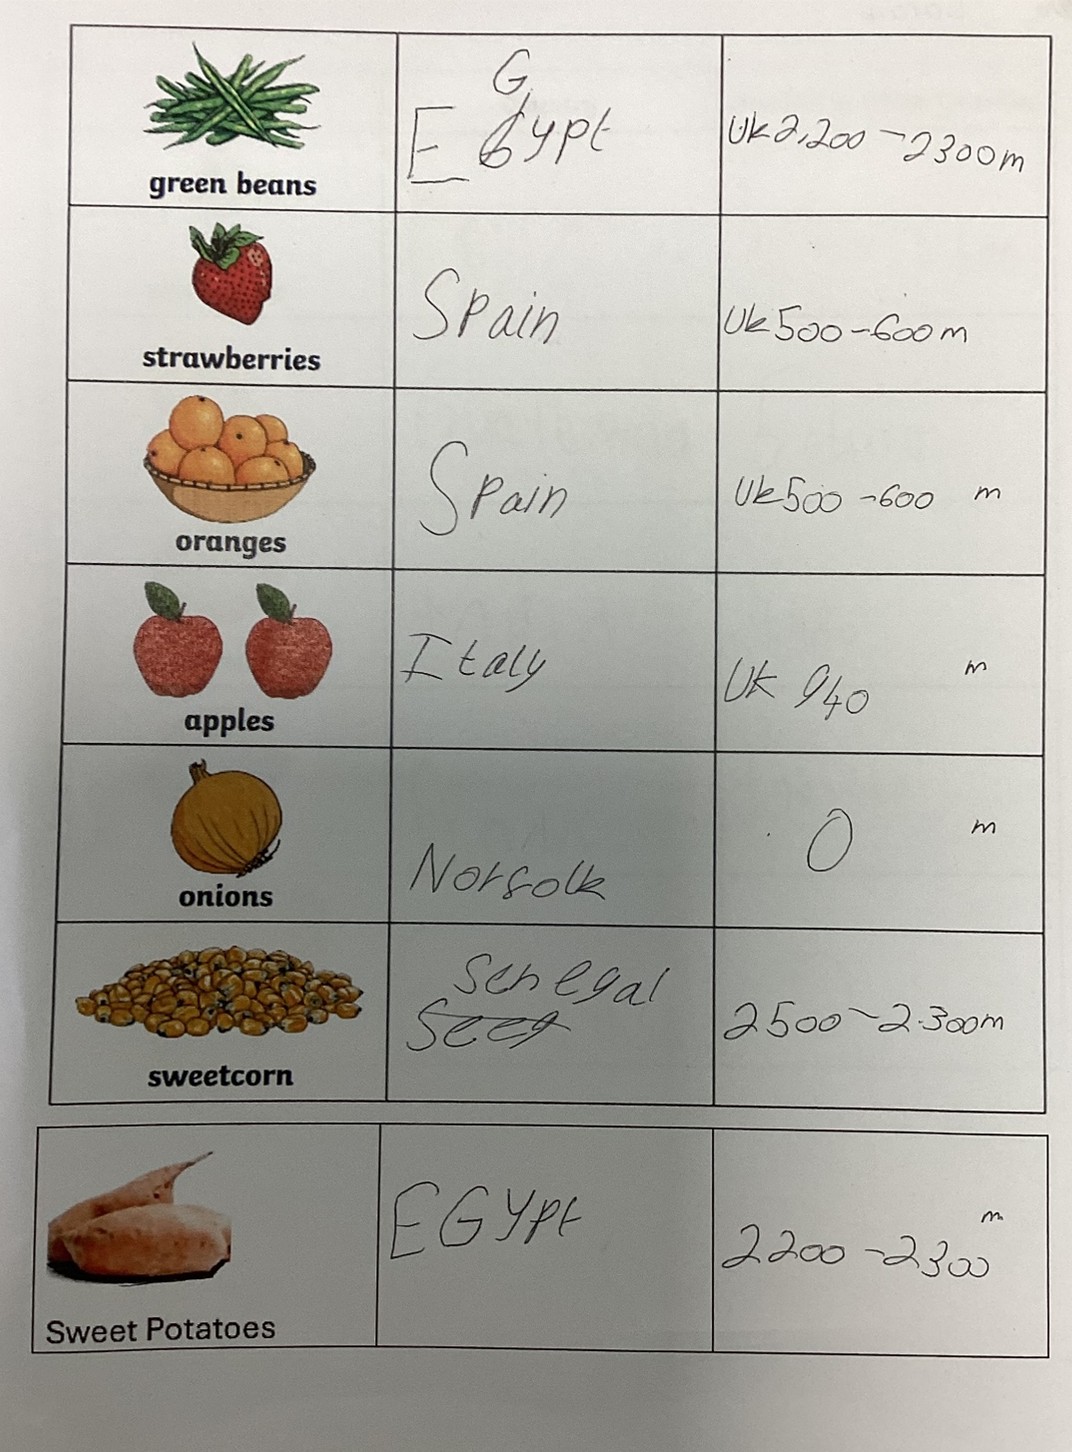 green beans
EGypt
Uk 2,200 - 2300m
strawberries
Spain
Uk 500 - 600m
oranges
Spain
Uk 500 - 600 m
apples
Italy
Uk 940 m
onions
Norfolk
0 m
sweetcorn
Senegal
2500 - 2.300m
Sweet Potatoes
EGypt
2200 - 2300 m